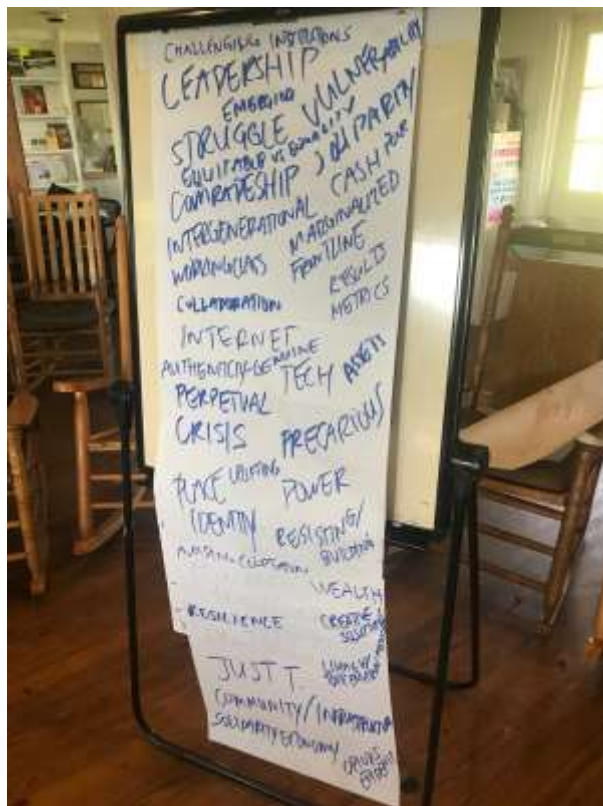 CHALLENGING INSTITUTIONS
LEADERSHIP
EMERGING
VULNERABILITY
STRUGGLE
EQUITABLE VS EQUALITY
COMRADESHIP
PARTY
CASH POOR
INTERGENERATIONAL
MARGINALIZED
WORKING CLASS
FRONTLINE
COLLABORATION
RESULTS
METRICS
INTERNET
AUTHENTICITY-GENUINE
TECH
ASSETS
PERPETUAL
CRISIS
PRECARIOUS
PLACE
UPLIFTING
POWER
IDENTITY
RESISTING/
BUILDING
WEALTH
RESILIENCE
CREATIVE
JUST T
COMMUNITY/INFRASTRUCTURE
SOLIDARITY ECONOMY